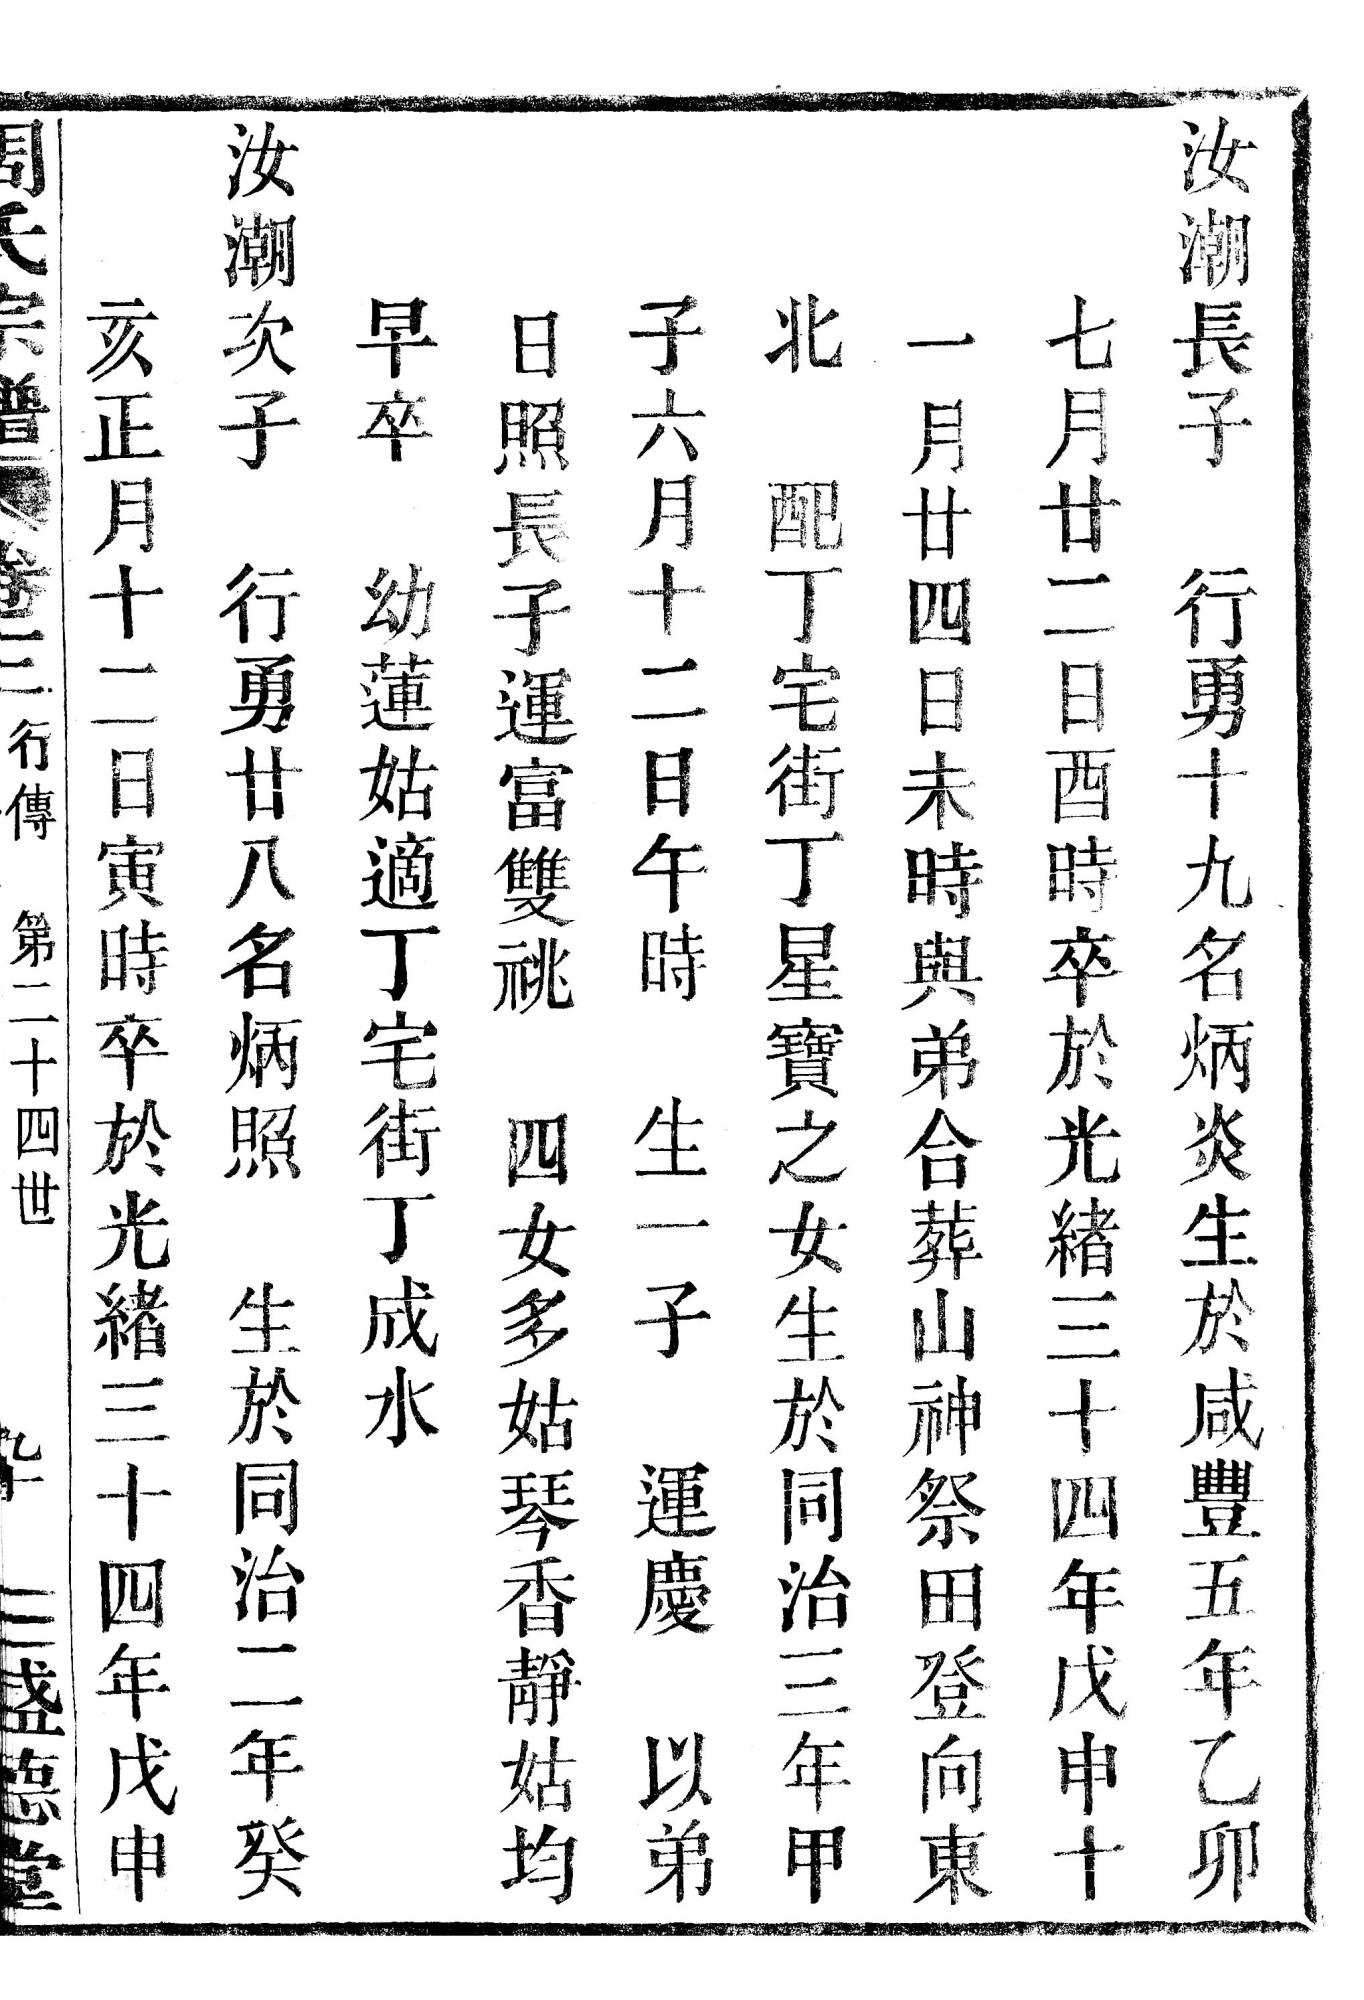 汝潮長子 行勇十九名炳炎生於咸豐五年乙卯
七月廿二日酉時卒於光緒三十四年戊申十
一月廿四日未時與弟合葬山神祭田登向東
北 配丁宅街丁星寶之女生於同治三年甲
子六月十二日午時 生一子 運慶 以弟
日照長子運富雙祧 四女多姑琴香靜姑均
早卒 幼蓮姑適丁宅街丁成水
汝潮次子 行勇廿八名炳照 生於同治二年癸
亥正月十二日寅時卒於光緒三十四年戊申
周氏宗譜 卷三 行傳 第二十四世 三盛德堂